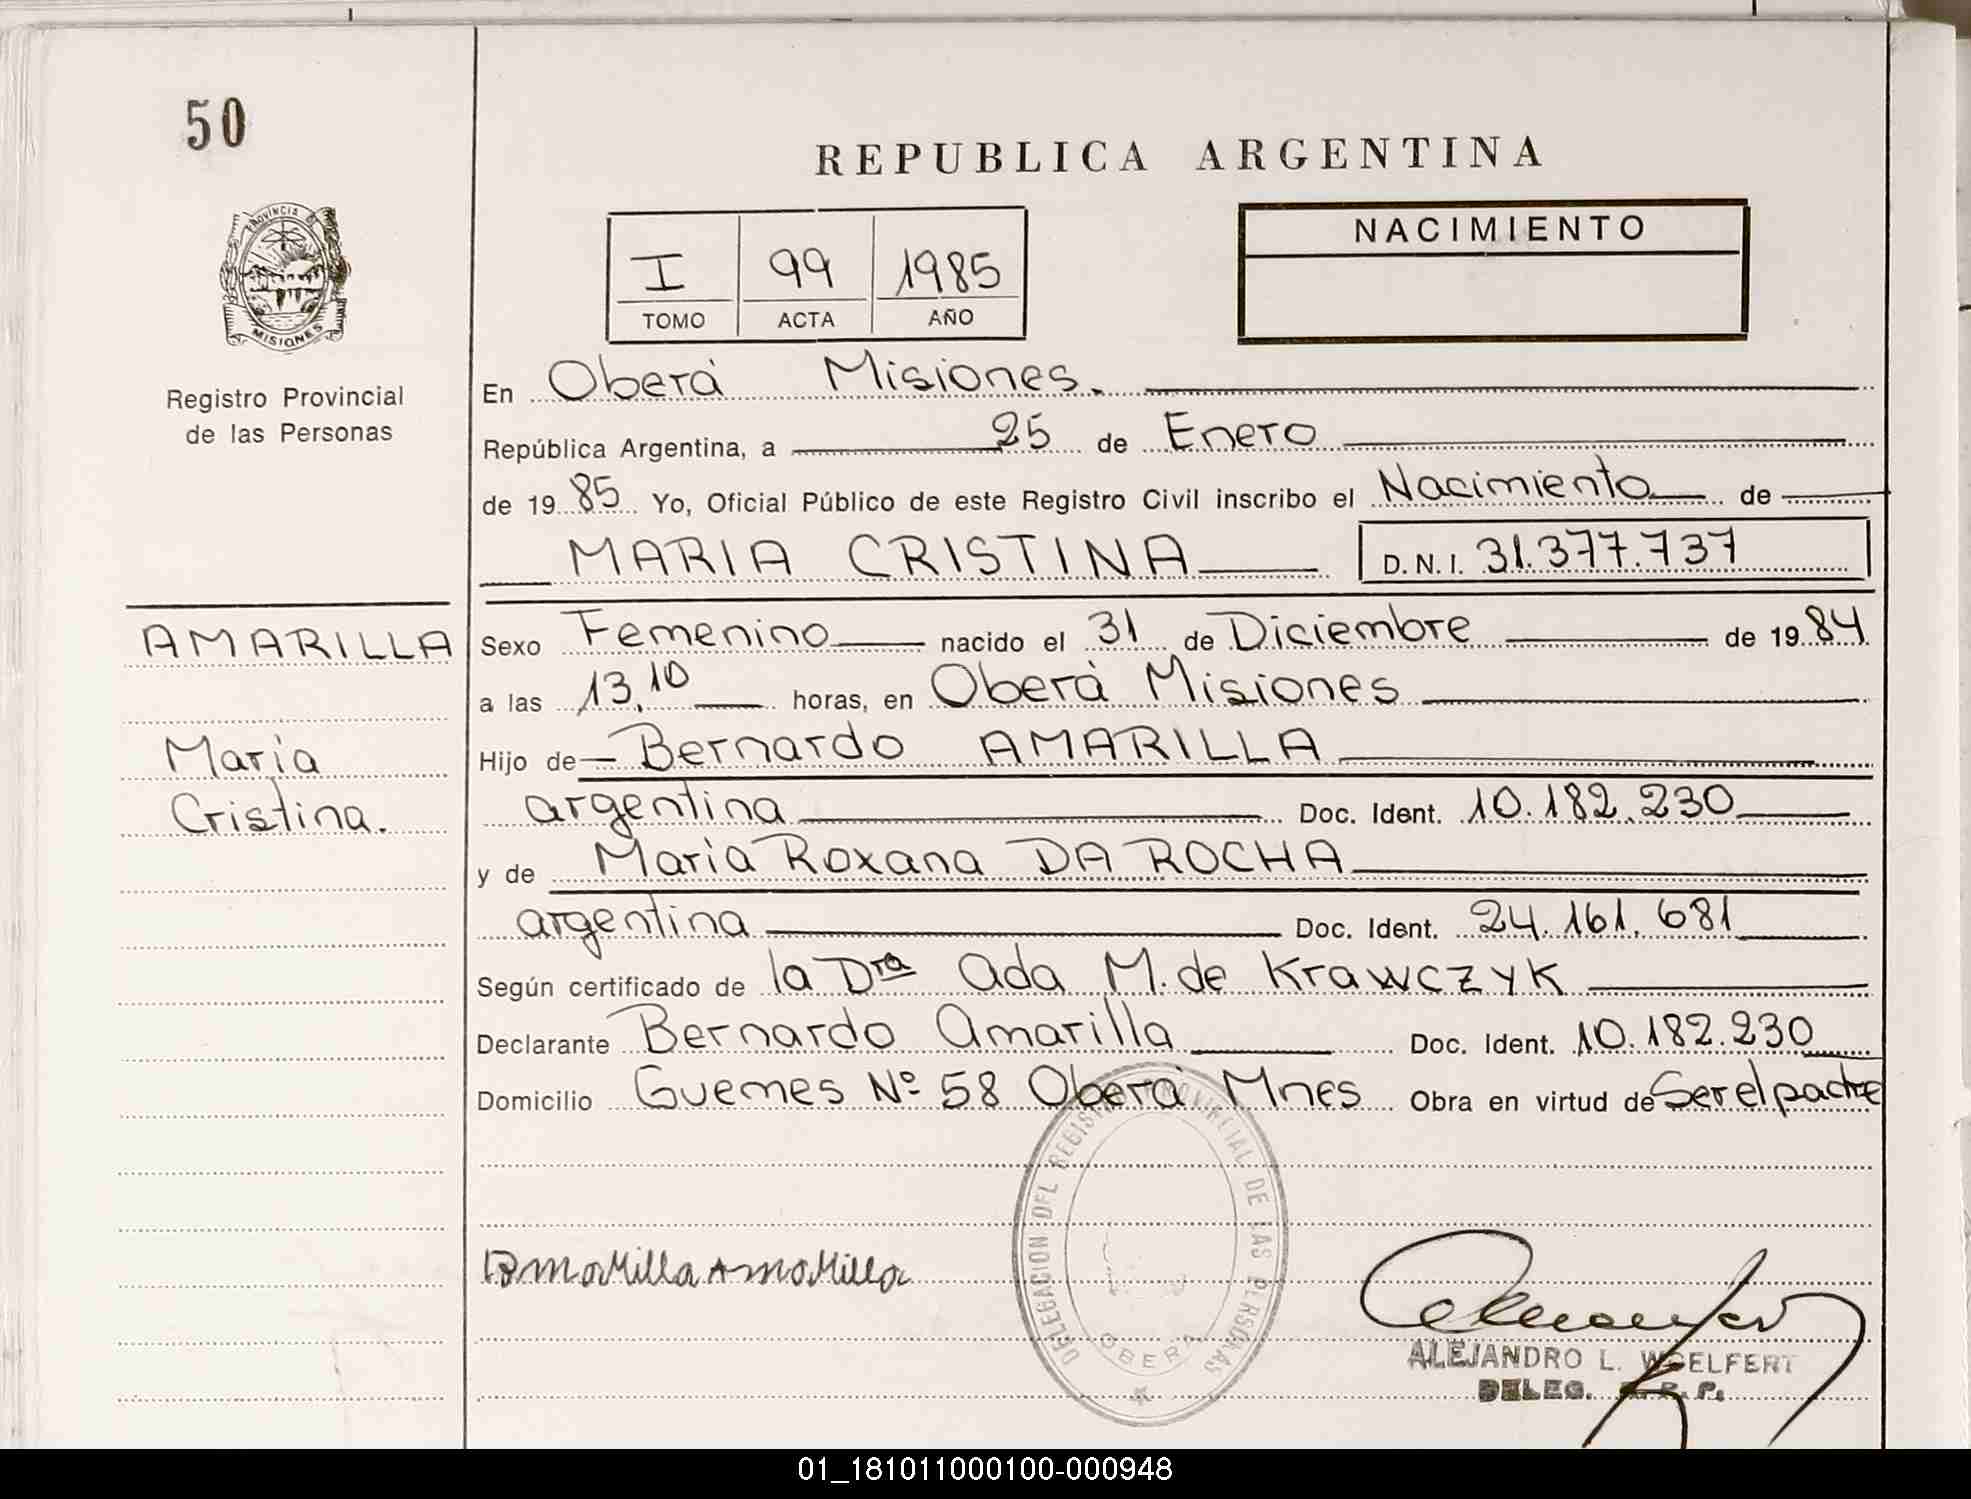 50
REPUBLICA ARGENTINA
PROVINCIA
MISIONES
I 99 1985
TOMO ACTA AÑO
NACIMIENTO
Registro Provincial
de las Personas
En Oberá Misiones.
República Argentina, a 25 de Enero
de 1985 Yo, Oficial Público de este Registro Civil inscribo el Nacimiento de
MARIA CRISTINA D.N.I. 31.377.737
AMARILLA
María
Cristina.
Sexo Femenino nacido el 31 de Diciembre de 1984
a las 13,10 horas, en Oberá Misiones
Hijo de Bernardo AMARILLA
argentina Doc. Ident. 10.182.230
y de Maria Roxana DA ROCHA
argentina Doc. Ident. 24.161.681
Según certificado de la Dra Ada M. de Krawczyk
Declarante Bernardo Amarilla Doc. Ident. 10.182.230
Domicilio Guemes Nº 58 Oberá Mnes Obra en virtud de Ser el padre
DELEGACION DEL REGISTRO PROVINCIAL DE LAS PERSONAS
OBERA
ALEJANDRO L. WOELFERT
DELEG. R. P.
01_181011000100-000948